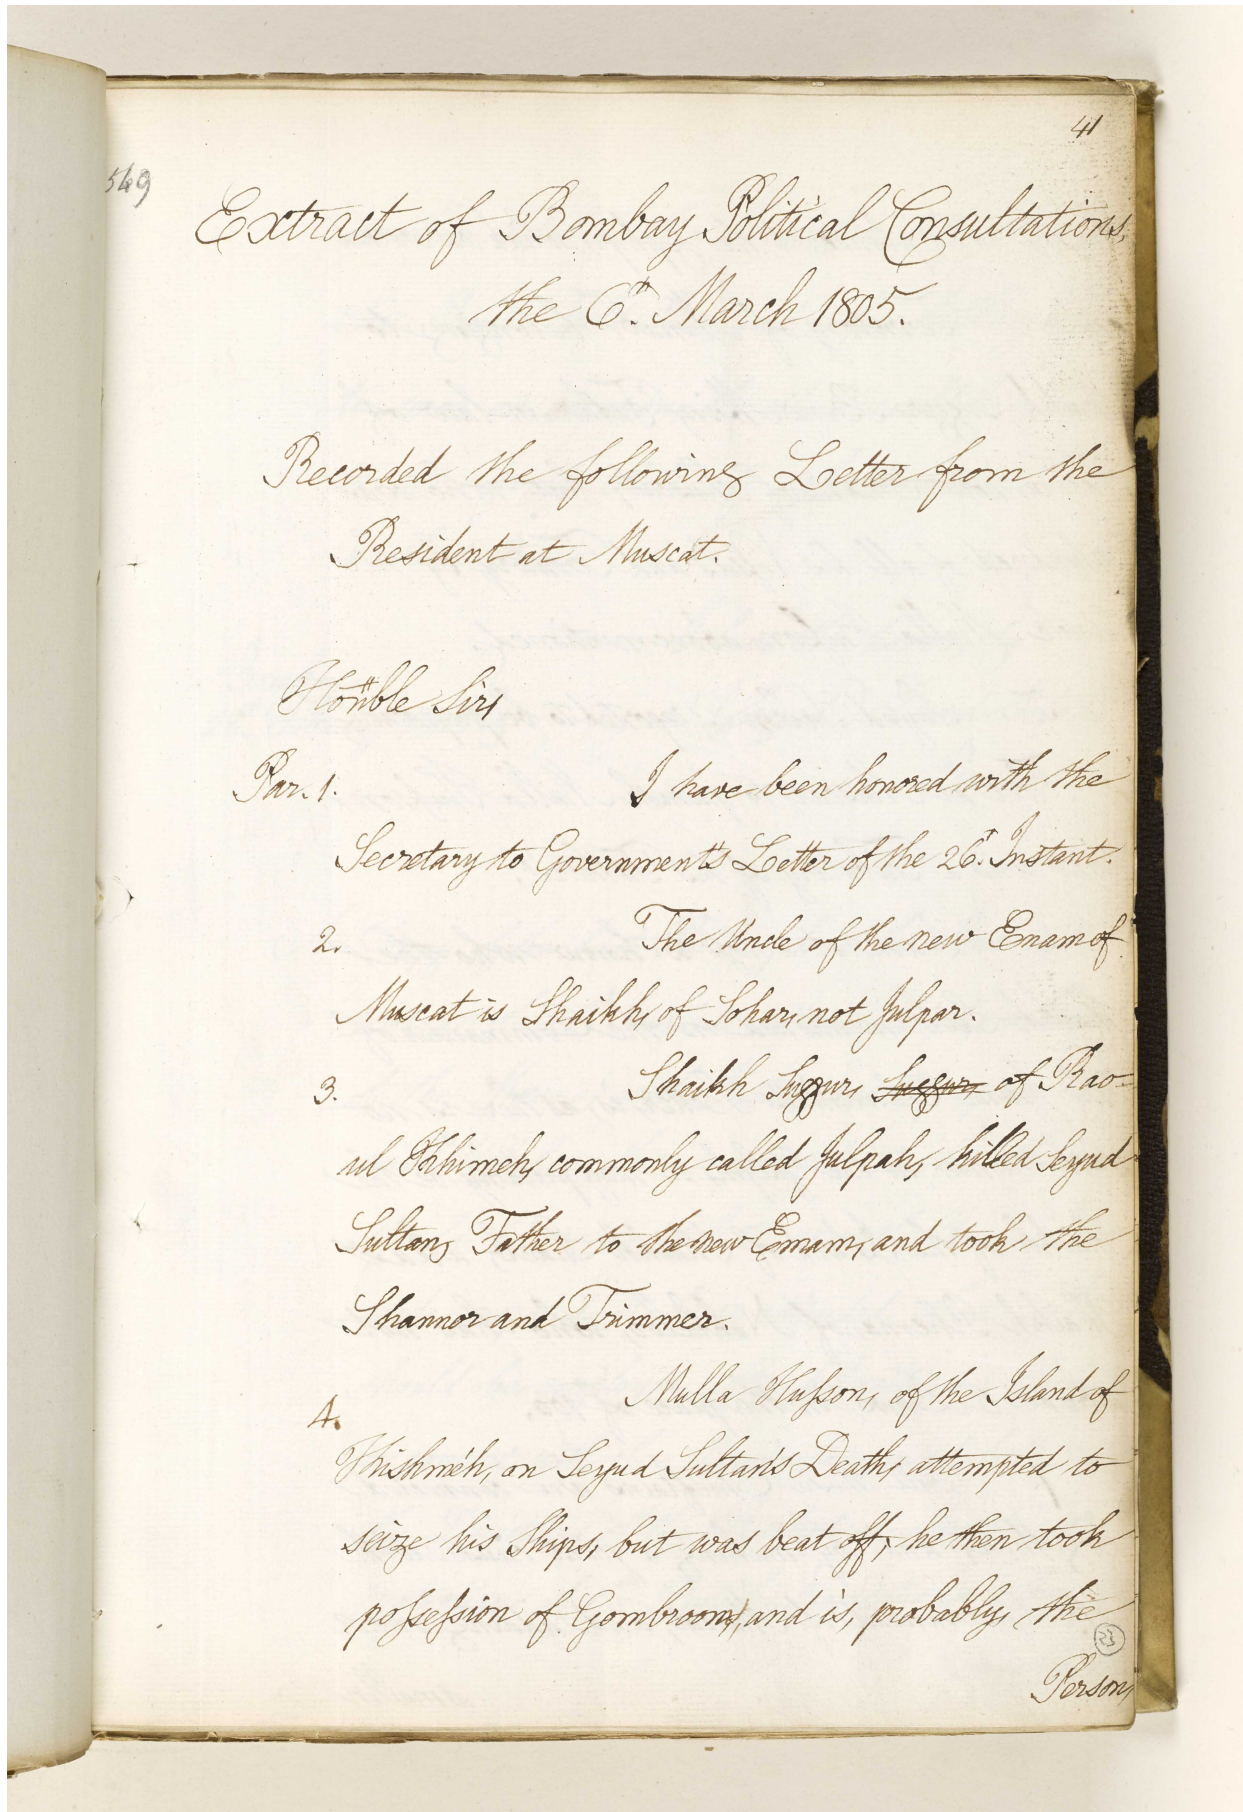 41
549
Extract of Bombay Political Consultations,
the 6th. March 1805.
Recorded the following Letter from the
Resident at Muscat.
Honble Sir,
Par. 1. I have been honored with the
Secretary to Government's Letter of the 26th. Instant.
2. The Uncle of the new Enam of
Muscat is Shaikh, of Sohar, not Julpar.
3. Shaikh Suggur, Suggur, of Rao-
ul Khimeh, commonly called Julpah, killed Seyud
Sultan, Father to the new Emam, and took the
Shannor and Trimmer.
4. Mulla Husson, of the Island of
Khishmeh, on Seyud Sultan's Death, attempted to
seize his Ships, but was beat off; he then took
possession of Gombroon, and is, probably, the
23
Person,